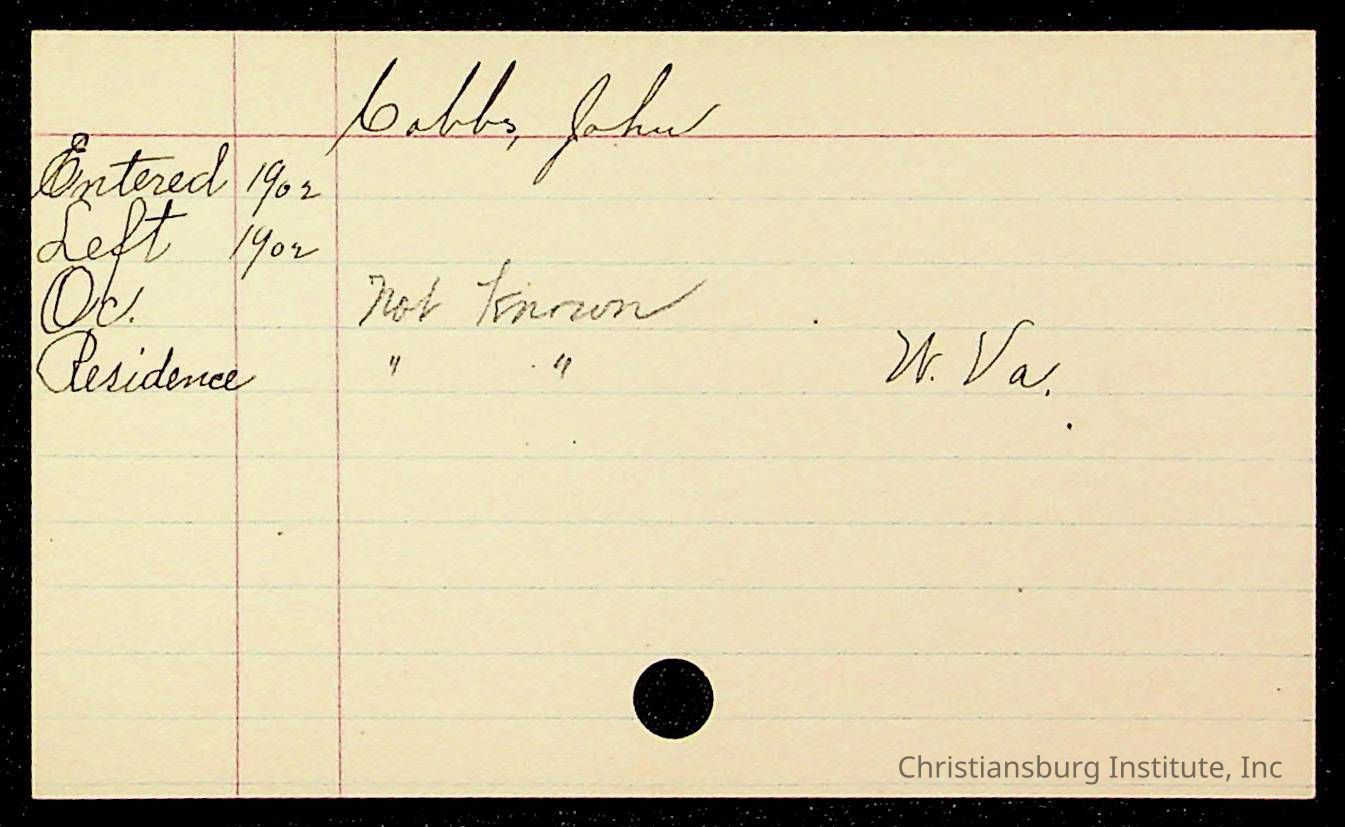 Cobbs, John
Entered 1902
Left 1902
Oc. Not Known
Residence " " W. Va.
Christiansburg Institute, Inc